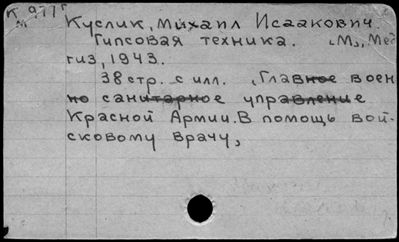 К 977Г
М
Куслик, Михаил Исаакович
Гипсовая техника. (М), Мед
гиз, 1943.
38 стр. с илл. (Главное воен
но санитарное управление
Красной Армии. В помощь вой-
сковому врачу)